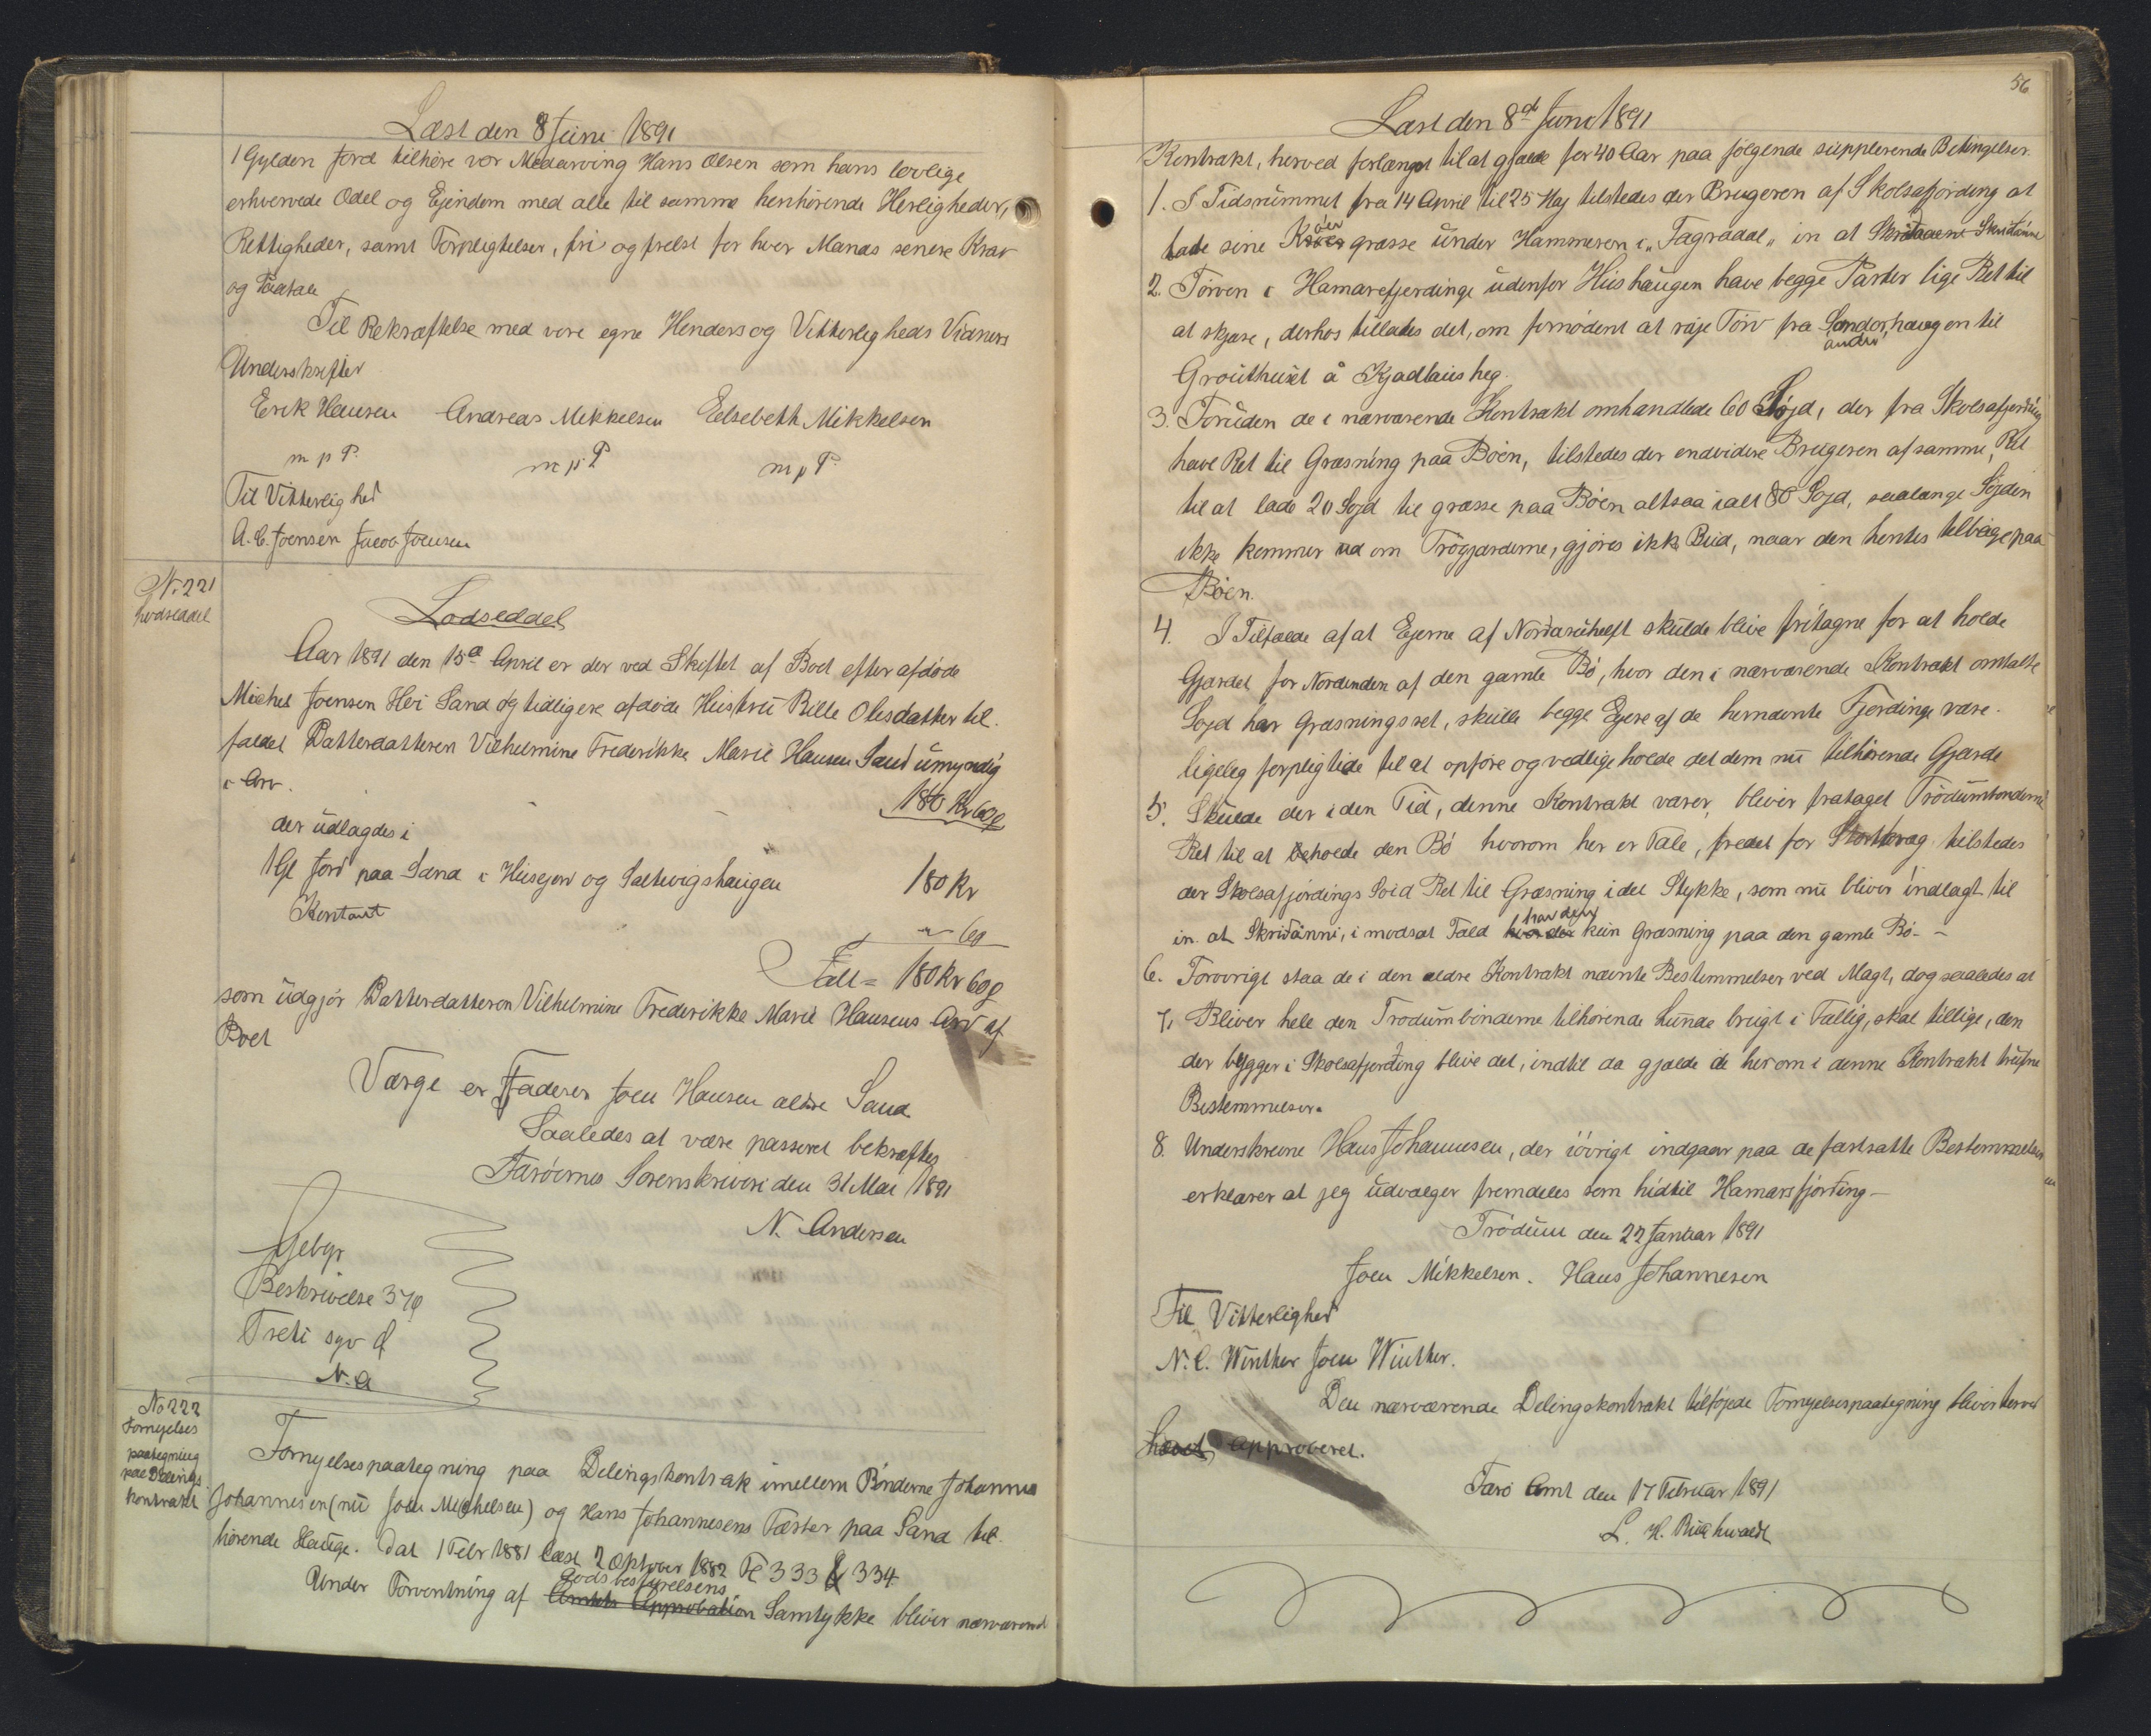 Læst den 8 Juni 1891
1 Gylden Jord tilhøre vor Medarving Hans Olsen som hans lovlige
erhvervede Odel og Ejendom med alle til samme henhørende Herligheder,
Rettigheder, samt Forpligtelser, fri og frelst for hver Mands senere Krav
og Paatale
Til Bekræftelse med vore egne Henders og Vitterligheds Vidners
Underskrifter
Erik Hansen Andreas Mikkelsen Eelsebeth Mikkelsen
m p P. m p P m p P.
Til Vitterlighed
A. C. Joensen Jacob Joensen
No 221
Lodseddel
Lodseddel
Aar 1891 den 15d April er der ved Skiftet af Boet efter afdøde
Michel Joensen Heri Sand og tidligere afdøde Hustru Bille Olesdatter til-
faldet Datterdatteren Vilhelmine Frederikke Marie Hansen Sand umyndig
i Arv.
180 Kr 60 ø
der udlagdes i
1 Gl Jord paa Sand i Husejord og Saltvigshaugen 180 Kr
Kontant " 60
Ialt = 180 Kr 60 ø
som udgjör Datterdatteren Vilhelmine Frederikke Marie Hansens Arv af
Boet
Værge er Faderen Joen Hansen ældre Sand
Saaledes at være passeret bekræftes
Færöernes Sorenskriveri den 31 Mai 1891
N. Andersen
Gebyr
Beskrivelse 37 ø
Treti syv ø
N. A
No 222
Fornyelses
paategning
paa Delings
kontrakt
Fornyelsespaategning paa Delingskontrak imellem Bönderne Johannes
Johannesen (nu Joen Michelsen) og Hans Johannesens Fæster paa Sand til-
hörende Hauge. Dat 1 Febr 1881 læst 2 Oktober 1882 Fl 333 & 334
Godsbestyrelsens
Under Forventning af Amtets Approbation Samtykke bliver nærværend
56
Læst den 8d Juni 1891
Kontrakt, herved forlænget til at gjælde for 40 Aar paa fölgende supplerende Betingelser.
1. I Tidsrummet fra 14 April til 25 Maj tilstedes der Brugeren af Skolsafjörding at
öer
lade sine Köer græsse under Hammeren i „Fagradal„ in at Skridaaene Skridánni
2. Törven i Hamarefjerdinge udenfor Hushaugen have begge Parter lige Ret til
at skjære, derhos tillades det, om fornödent at röje Törv fra Sondorhaugen til
andre
Grouthuset å Kjadlaus heg.
3. Foruden de i nærværende Kontrakt omhandlede 60 Söjd, der fra Skolsafjerding
have Ret til Græsning paa Böen, tilstedes der endvidere Brugeren af samme, Ret
til at lade 20 Sojd til græsse paa Böen altsaa ialt 80 Sojd, saalænge Söjden
ikke kommer ud om Trögjærderne, gjöres ikke Bud, naar den hentes tilbage paa
Böen.
4. I Tilfælde af at Ejerne af Nordaruhelft skulde blive fritagne for at holde
Gjærdet for Nordenden af den gamle Bö, hvor den i nærværende Kontrakt omtalte
Sojd har Græsningsret, skulle begge Ejere af de hernævnte Fjerdinge være-
ligeleg forpligtede til at opföre og vedligeholde det dem nu tilhörende Gjærde
5. Skulde der i den Tid, denne Kontrakt varer, bliver frataget Trödumbönderne
Ret til at beholde den Bö hvorom her er Tale, fredet for Stortkvæg tilstedes
der Skolsafjördings Soid Ret til Græsning i det Stykke, som nu bliver indlagt til
har den
in at Skridánni, i modsat Fald kun Græsning paa den gamle Bö. –
6. Forövrigt staa de i den ældre Kontrakt nævnte Bestemmelser ved Magt, dog saaledes at
7. Bliver hele den Trodumbönderne tilhörende Hunde brugt i Fællig, skal tillige, den
der bygger i Skolsafjerding blive det, indtil da gjælde de herom i denne Kontrakt trufne
Bestemmelser.
8. Underskrevne Hans Johannesen, der iövrigt indgaar paa de fastsatte Bestemmelser
erklærer at jeg udvælger fremdeles som hidtil Hamarsfjörding –
Trödum den 22 Januar 1891
Joen Mikkelsen. Hans Johannesen
Til Vitterlighed
N. C. Winther Joen Winther.
Den nærværende Delingskontrakt tilföjede Fornyelsespaategning bliver herved
herved approberet.
Færö Amt den 17 Februar 1891
L. H. Buchwaldt